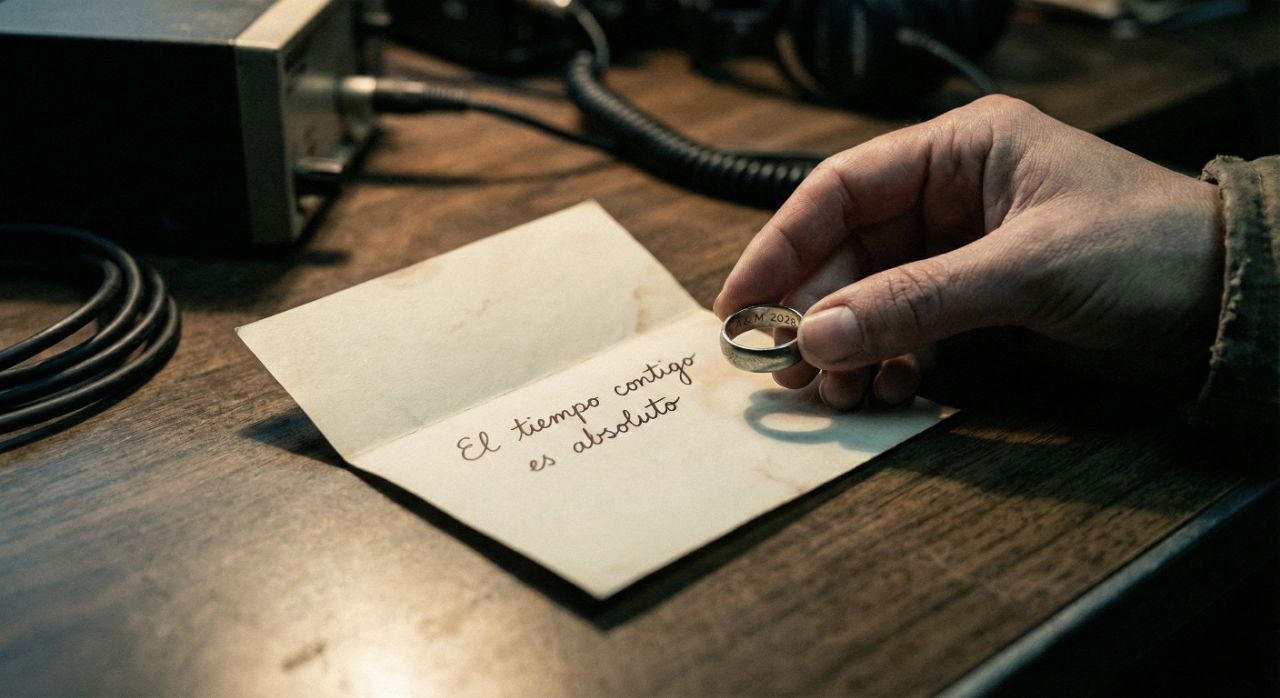 El tiempo contigo
es absoluto
& M 2028